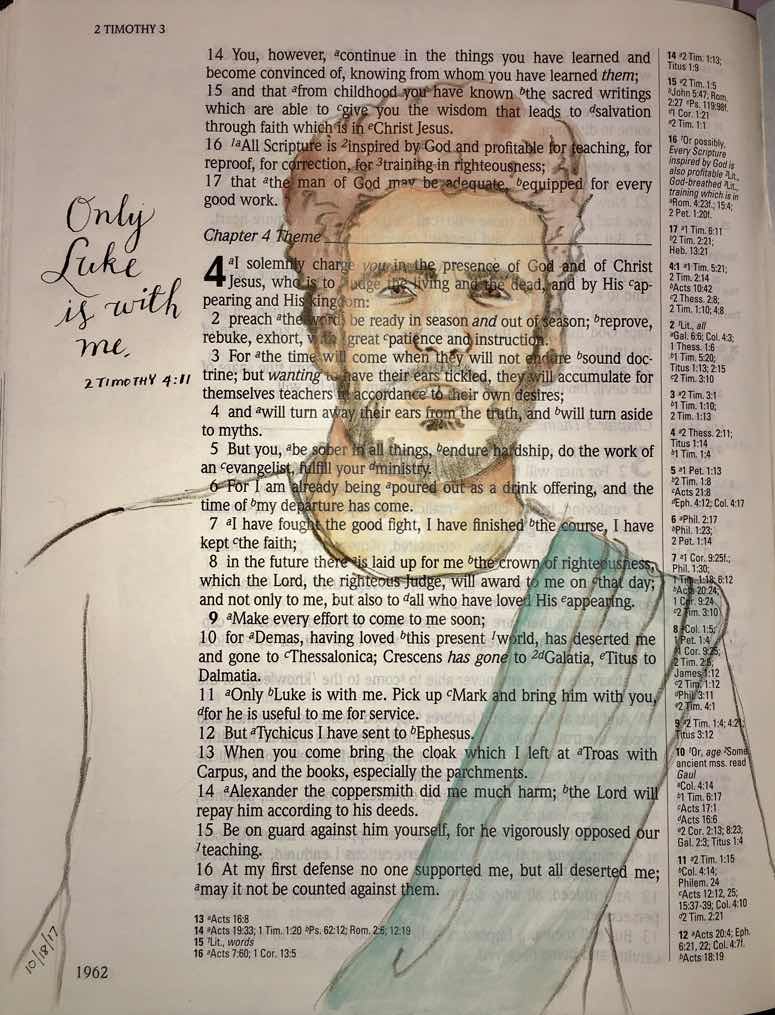 2 TIMOTHY 3
14 You, however, ᵃcontinue in the things you have learned and
become convinced of, knowing from whom you have learned them;
15 and that ᵃfrom childhood you have known ᵇthe sacred writings
which are able to ᶜgive you the wisdom that leads to ᵈsalvation
through faith which is in ᵉChrist Jesus.
16 ¹ᵃAll Scripture is ²inspired by God and profitable for teaching, for
reproof, for correction, for ³training in righteousness;
17 that ᵃthe man of God may be adequate, ᵇequipped for every
good work.
Chapter 4 Theme
4 ᵃI solemnly charge you in the presence of God and of Christ
Jesus, who is to judge the living and the dead, and by His ᶜap-
pearing and His kingdom:
2 preach ᵃthe word; be ready in season and out of season; ᵇreprove,
rebuke, exhort, with great ᶜpatience and instruction.
3 For ᵃthe time will come when they will not endure ᵇsound doc-
trine; but wanting to have their ears tickled, they will accumulate for
themselves teachers in accordance to their own desires;
4 and ᵃwill turn away their ears from the truth, and ᵇwill turn aside
to myths.
5 But you, ᵃbe sober in all things, ᵇendure hardship, do the work of
an ᶜevangelist, fulfill your ᵈministry.
6 For I am already being ᵃpoured out as a drink offering, and the
time of ᵇmy departure has come.
7 ᵃI have fought the good fight, I have finished ᵇthe course, I have
kept ᶜthe faith;
8 in the future there ᵃis laid up for me ᵇthe crown of righteousness,
which the Lord, the righteous Judge, will award to me on ᶜthat day;
and not only to me, but also to ᵈall who have loved His ᵉappearing.
9 ᵃMake every effort to come to me soon;
10 for ᵃDemas, having loved ᵇthis present ¹world, has deserted me
and gone to ᶜThessalonica; Crescens has gone to ²ᵈGalatia, ᵉTitus to
Dalmatia.
11 ᵃOnly ᵇLuke is with me. Pick up ᶜMark and bring him with you,
ᵈfor he is useful to me for service.
12 But ᵃTychicus I have sent to ᵇEphesus.
13 When you come bring the cloak which I left at ᵃTroas with
Carpus, and the books, especially the parchments.
14 ᵃAlexander the coppersmith did me much harm; ᵇthe Lord will
repay him according to his deeds.
15 Be on guard against him yourself, for he vigorously opposed our
¹teaching.
16 At my first defense no one supported me, but all deserted me;
ᵃmay it not be counted against them.
13 ᵃActs 16:8
14 ᵃActs 19:33; 1 Tim. 1:20 ᵇPs. 62:12; Rom. 2:6; 12:19
15 ¹Lit., words
16 ᵃActs 7:60; 1 Cor. 13:5
1962
Only
Luke
is with
me.
2 TIMOTHY 4:11
10/18/17
14 ᵃ2 Tim. 1:13;
Titus 1:9
15 ᵃ2 Tim. 1:5
ᵇJohn 5:47; Rom.
2:27 ᶜPs. 119:98f.
ᵈ1 Cor. 1:21
ᵉ2 Tim. 1:1
16 ¹Or possibly,
Every Scripture
inspired by God is
also profitable ²Lit.,
God-breathed ³Lit.,
training which is in
ᵃRom. 4:23f.; 15:4;
2 Pet. 1:20f.
17 ᵃ1 Tim. 6:11
ᵇ2 Tim. 2:21;
Heb. 13:21
4:1 ᵃ1 Tim. 5:21;
2 Tim. 2:14
ᵇActs 10:42
ᶜ2 Thess. 2:8;
2 Tim. 1:10; 4:8
2 ¹Lit., all
ᵃGal. 6:6; Col. 4:3;
1 Thess. 1:6
ᵇ1 Tim. 5:20;
Titus 1:13; 2:15
ᶜ2 Tim. 3:10
3 ᵃ2 Tim. 3:1
ᵇ1 Tim. 1:10;
2 Tim. 1:13
4 ᵃ2 Thess. 2:11;
Titus 1:14
ᵇ1 Tim. 1:4
5 ᵃ1 Pet. 1:13
ᵇ2 Tim. 1:8
ᶜActs 21:8
ᵈEph. 4:12; Col. 4:17
6 ᵃPhil. 2:17
ᵇPhil. 1:23;
2 Pet. 1:14
7 ᵃ1 Cor. 9:25f.;
Phil. 1:30;
1 Tim. 1:18; 6:12
ᵇActs 20:24;
1 Cor. 9:24
ᶜ2 Tim. 3:10
8 ᵃCol. 1:5;
1 Pet. 1:4
ᵇ1 Cor. 9:25;
2 Tim. 2:5;
James 1:12
ᶜ2 Tim. 1:12
ᵈPhil. 3:11
ᵉ2 Tim. 4:1
9 ᵃ2 Tim. 1:4; 4:21;
Titus 3:12
10 ¹Or, age ²Some
ancient mss. read
Gaul
ᵃCol. 4:14
ᵇ1 Tim. 6:17
ᶜActs 17:1
ᵈActs 16:6
ᵉ2 Cor. 2:13; 8:23;
Gal. 2:3; Titus 1:4
11 ᵃ2 Tim. 1:15
ᵇCol. 4:14;
Philem. 24
ᶜActs 12:12, 25;
15:37-39; Col. 4:10
ᵈ2 Tim. 2:21
12 ᵃActs 20:4; Eph.
6:21, 22; Col. 4:7f.
ᵇActs 18:19